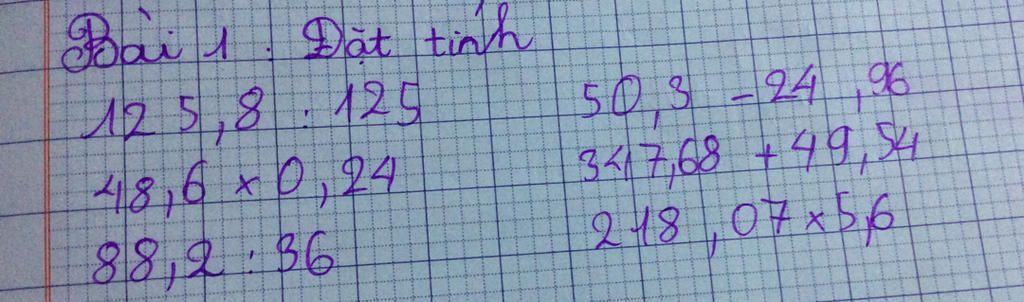 Bài 1 : Đặt tính
125,8 : 125 50,3 - 24,96
48,6 x 0,24 347,68 + 49,54
88,2 : 36 218,07 x 5,6